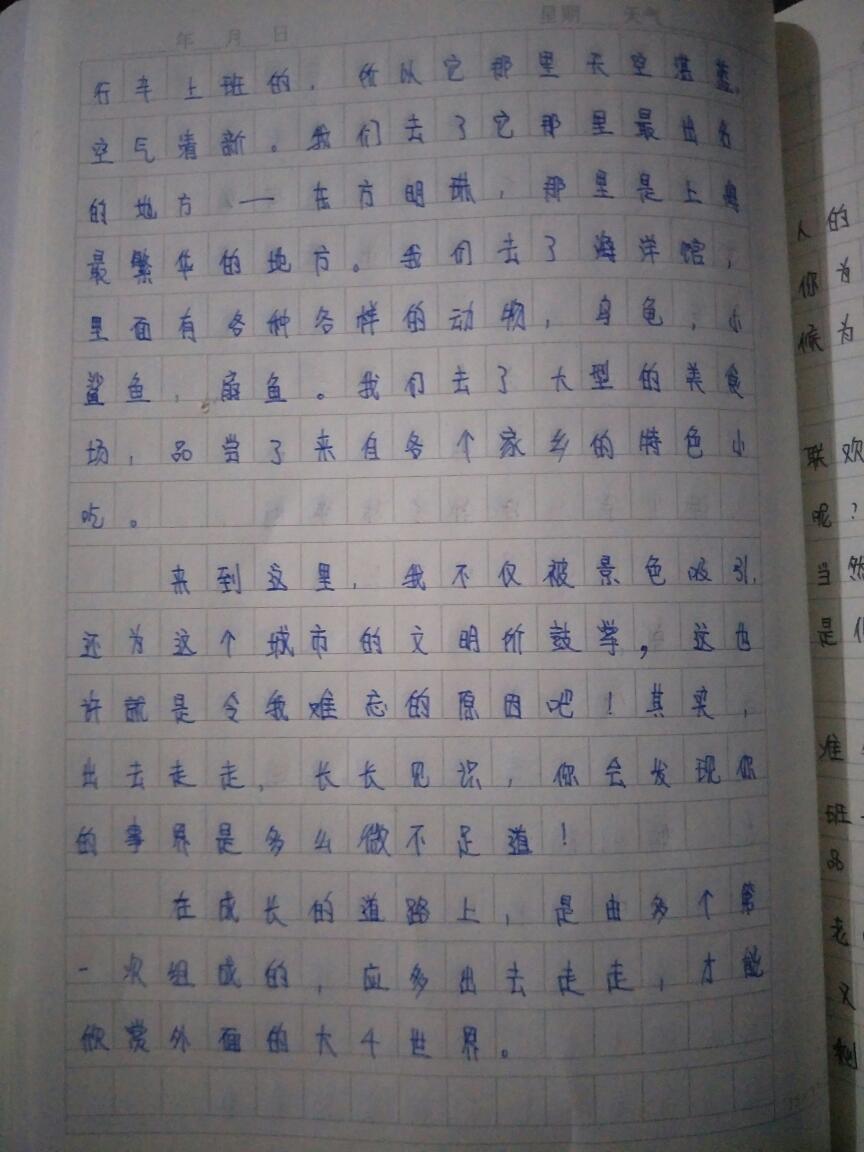 年 月 日 星期 天气
行车上班的，所以它那里天空湛蓝，
空气清新。我们去了它那里最出名
的地方——东方明珠，那里是上海
最繁华的地方。我们去了海洋馆，
里面有各种各样的动物，乌龟，小
鲨鱼，扇鱼。我们去了大型的美食
场，品当了来自各个家乡的特色小
吃。
来到这里，我不仅被景色吸引，
还为这个城市的文明所鼓掌，这也
许就是令我难忘的原因吧！其实，
出去走走，长长见识，你会发现你
的事界是多么微不足道！
在成长的道路上，是由多个第
一次组成的，应多出去走走，才能
欣赏外面的大千世界。
人的
你为
候为
联欢
呢？
当然
是
难
班
品
老
又